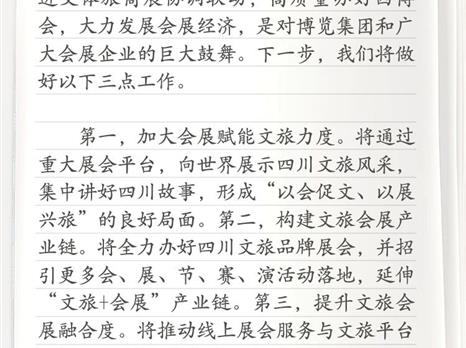 进文体旅商展协调联动，高质量办好西博
会，大力发展会展经济，是对博览集团和广
大会展企业的巨大鼓舞。下一步，我们将做
好以下三点工作。
第一，加大会展赋能文旅力度。将通过
重大展会平台，向世界展示四川文旅风采，
集中讲好四川故事，形成“以会促文、以展
兴旅”的良好局面。第二，构建文旅会展产
业链。将全力办好四川文旅品牌展会，并招
引更多会、展、节、赛、演活动落地，延伸
“文旅+会展”产业链。第三，提升文旅会
展融合度。将推动线上展会服务与文旅平台